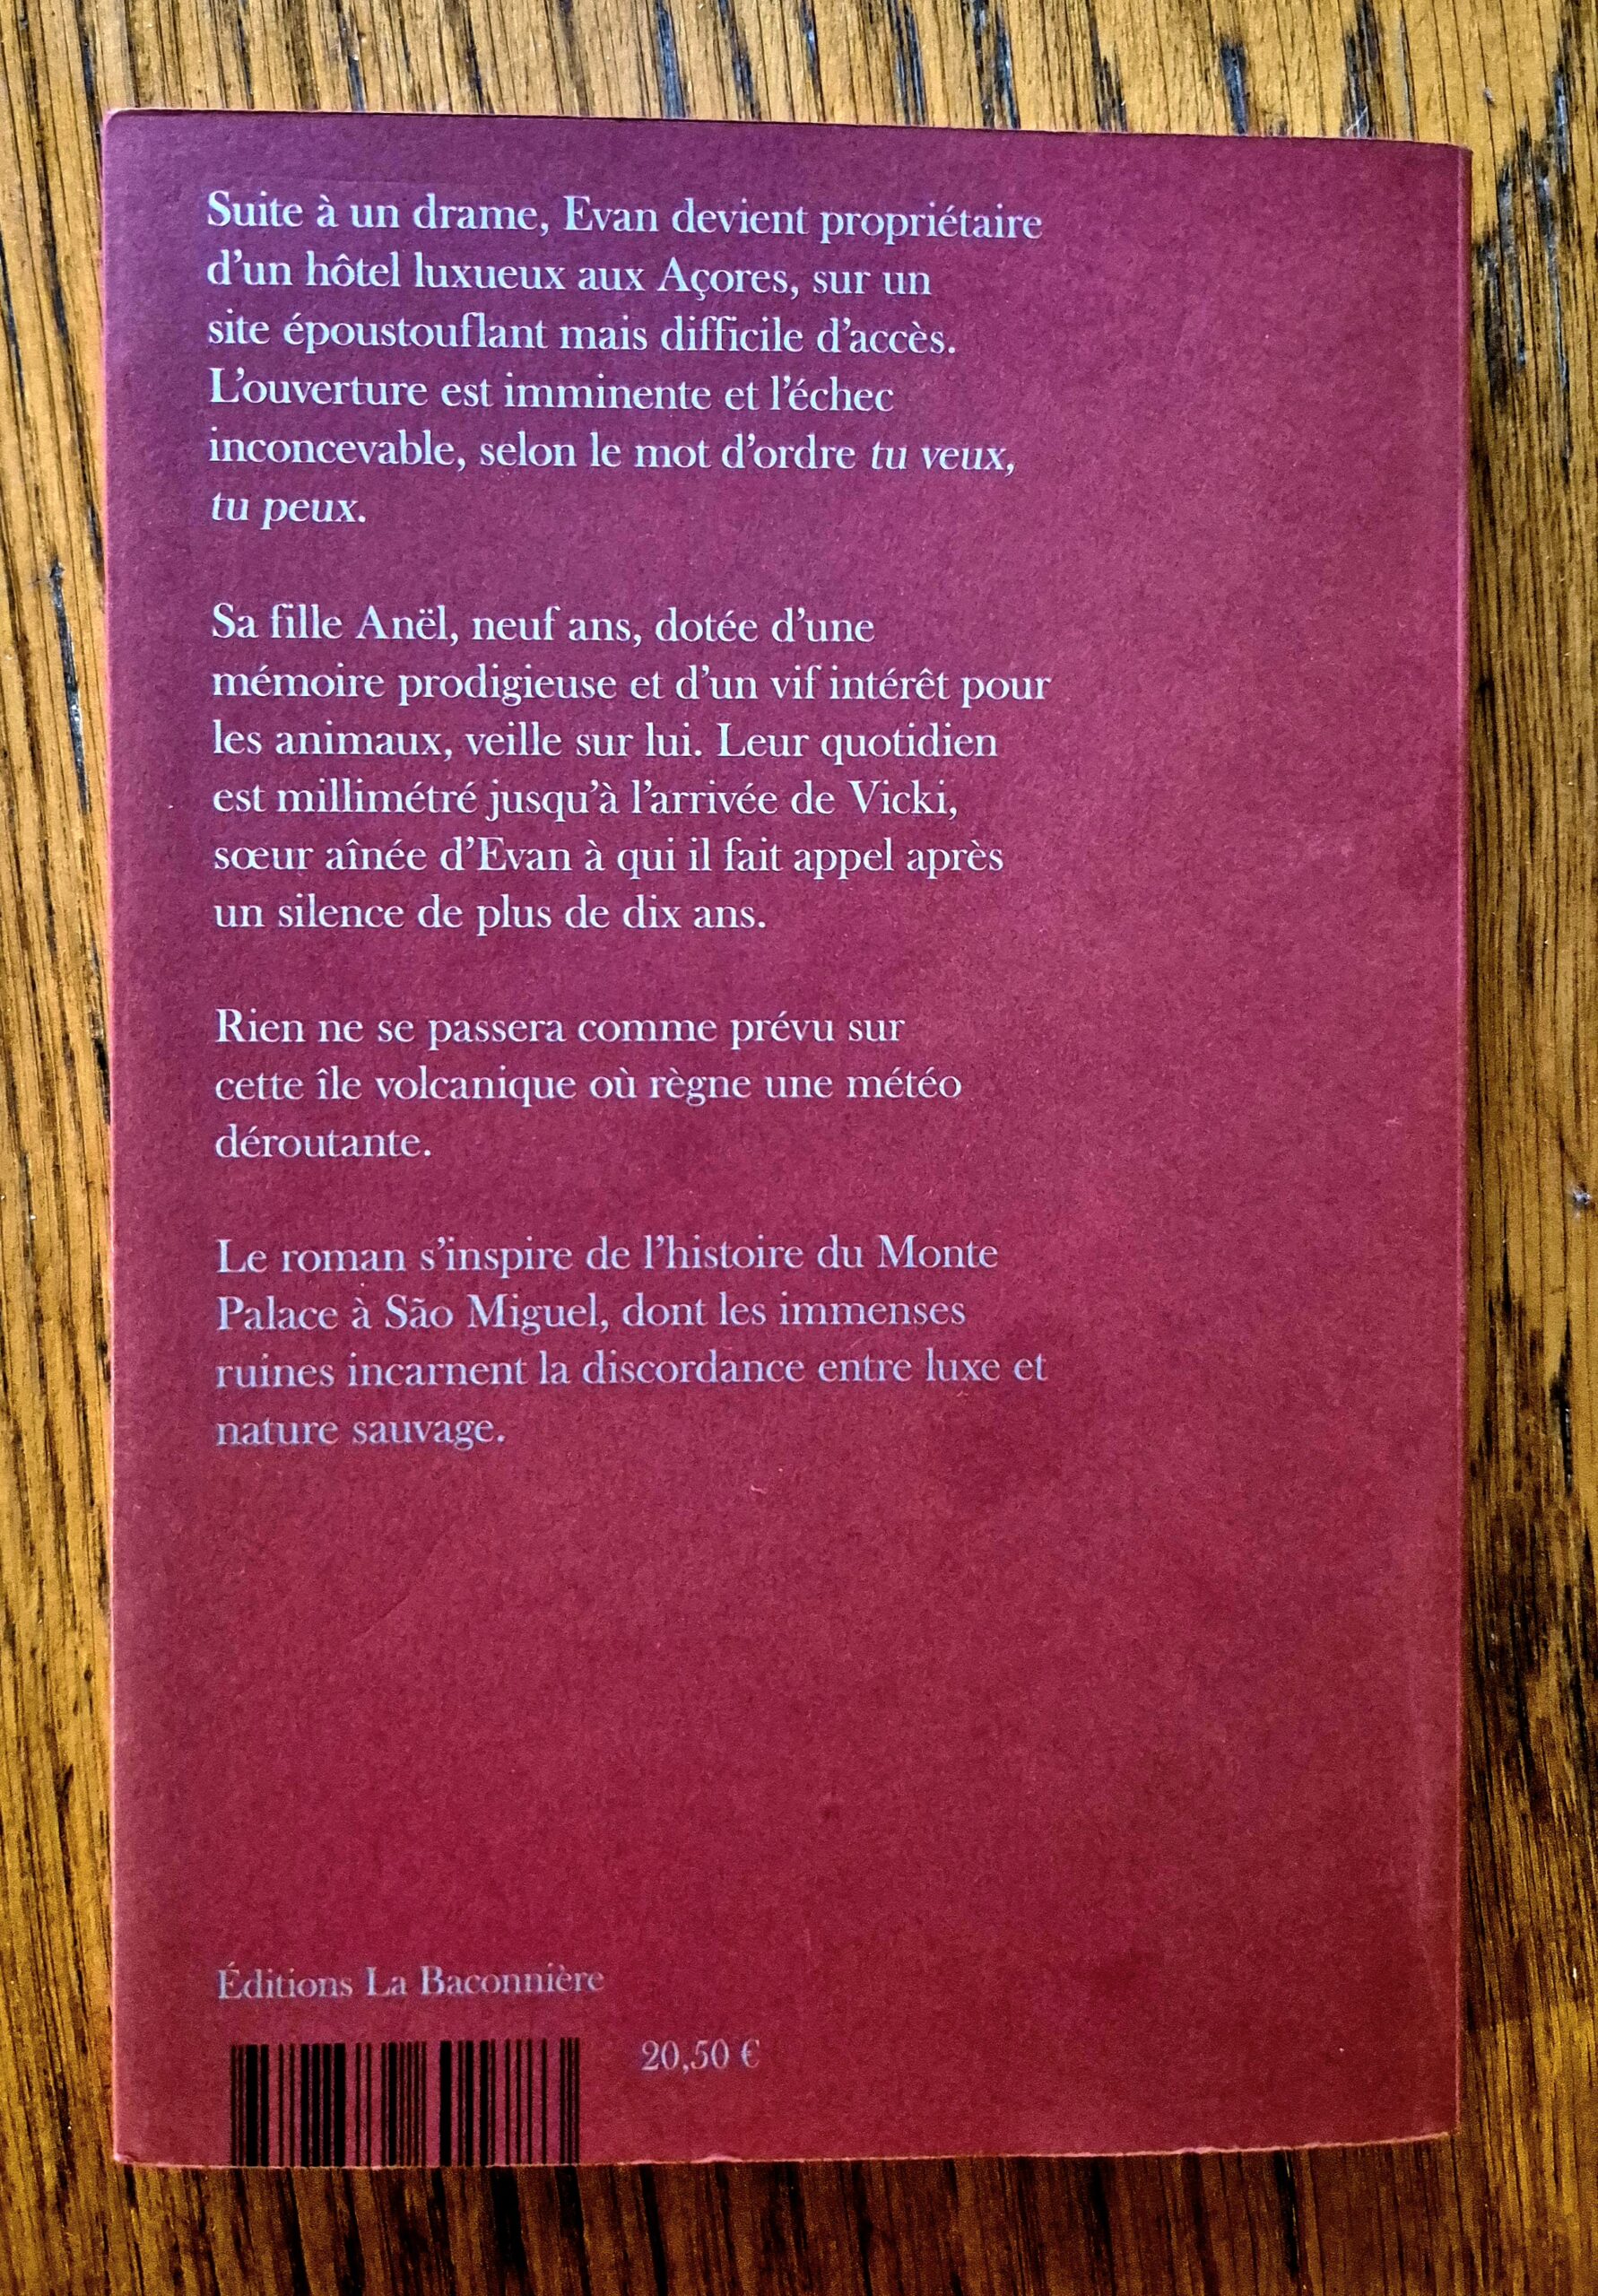 Suite à un drame, Evan devient propriétaire
d’un hôtel luxueux aux Açores, sur un
site époustouflant mais difficile d’accès.
L’ouverture est imminente et l’échec
inconcevable, selon le mot d’ordre tu veux,
tu peux.
Sa fille Anël, neuf ans, dotée d’une
mémoire prodigieuse et d’un vif intérêt pour
les animaux, veille sur lui. Leur quotidien
est millimétré jusqu’à l’arrivée de Vicki,
sœur aînée d’Evan à qui il fait appel après
un silence de plus de dix ans.
Rien ne se passera comme prévu sur
cette île volcanique où règne une météo
déroutante.
Le roman s’inspire de l’histoire du Monte
Palace à São Miguel, dont les immenses
ruines incarnent la discordance entre luxe et
nature sauvage.
Éditions La Baconnière
20,50 €